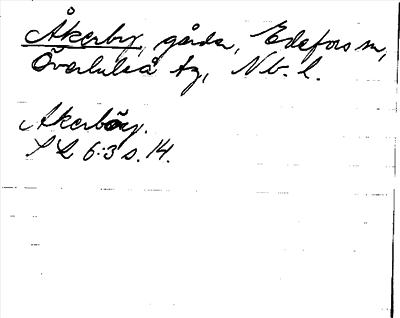 Åkerby, gårdar, Edefors sn,
Överluleå tg, Nb. l.
Åkerböy.
S L 6:3 s. 14.